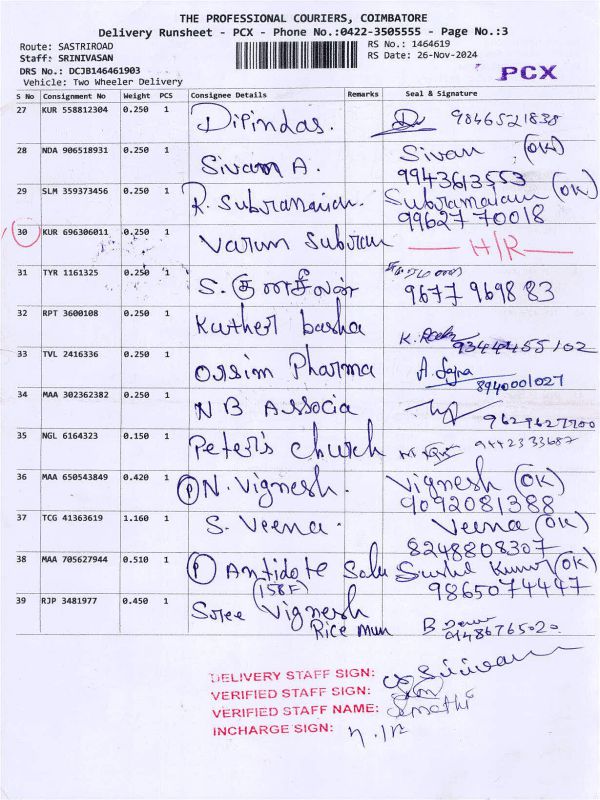 THE PROFESSIONAL COURIERS, COIMBATORE
Delivery Runsheet - PCX - Phone No.:0422-3505555 - Page No.:3
Route: SASTRIROAD RS No.: 1464619
Staff: SRINIVASAN RS Date: 26-Nov-2024
DRS No.: DCJB146461903 PCX
Vehicle: Two Wheeler Delivery
S No Consignment No Weight PCS Consignee Details Remarks Seal & Signature
27 KUR 558812304 0.250 1 Dipindas. 9846521838
28 NDA 906518931 0.250 1 Sivam A. Sivan (OK)
9943613553
29 SLM 359373456 0.250 1 R. Subramanian Subramaiam (OK)
99627 70018
30 KUR 696306011 0.250 1 Varun Subram H/R
31 TYR 1161325 0.250 1 S. குணசீலன் 9677 969883
32 RPT 3600108 0.250 1 Kuther basha
9344455102
33 TVL 2416336 0.250 1 Ossim Pharma A. Sajna
8940001027
34 MAA 302362382 0.250 1 N B Associa 9629627700
35 NGL 6164323 0.150 1 Peter's church 9442333687
36 MAA 650543849 0.420 1 (P) N. Vignesh. Vignesh (OK)
9092081388
37 TCG 41363619 1.160 1 S. Veena. Veena (OK)
8248808307
38 MAA 705627944 0.510 1 (P) Antidote Solu Sushil Kumar (OK)
(158F) 9865074447
39 RJP 3481977 0.450 1 Sree Vignesh
Rice mun 91486765020
DELIVERY STAFF SIGN:
VERIFIED STAFF SIGN:
VERIFIED STAFF NAME: Sumathi
INCHARGE SIGN: